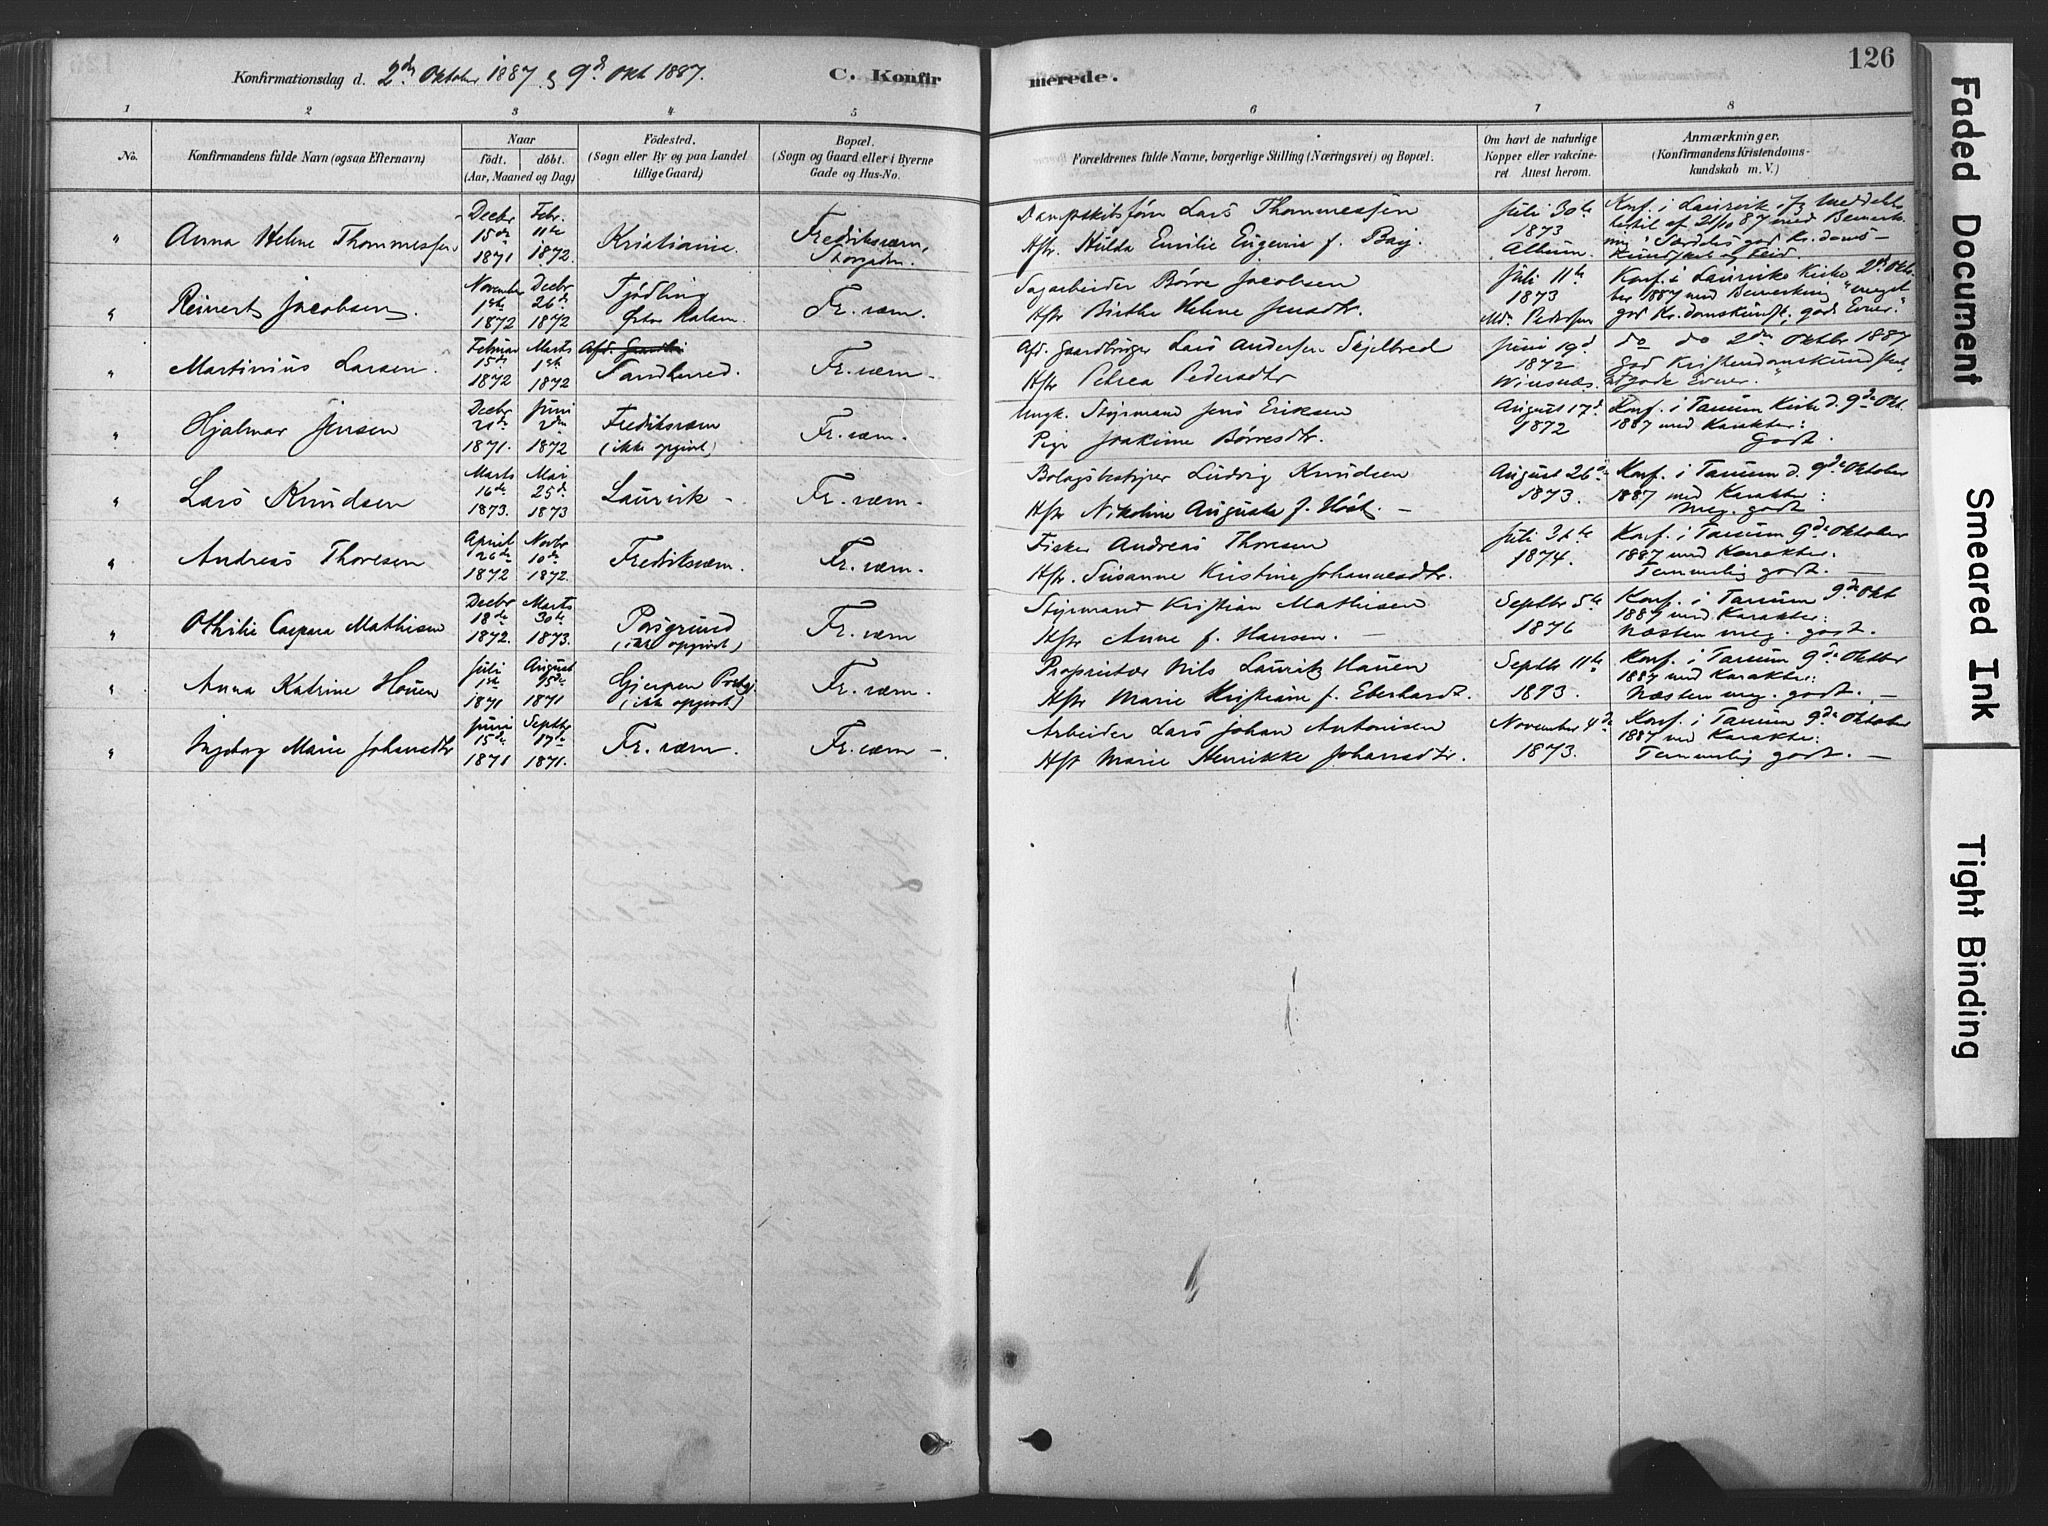 126
Konfirmationsdag d. 2den Oktober 1887 & 9de Okt 1887.
C. Konfirmerede.
1 2 3 4 5 6 7 8
No.
Konfirmandens fulde Navn (ogsaa Efternavn)
Naar
födt. döbt.
(Aar, Maaned og Dag)
Födested.
(Sogn eller By og paa Landet
tillige Gaard)
Bopæl.
(Sogn og Gaard eller i Byerne
Gade og Hus-No.
Forældrenes fulde Navne, borgerlige Stilling (Næringsvei) og Bopæl.
Om havt de naturlige
Kopper eller vakcine-
ret Attest herom.
Anmærkninger.
(Konfirmandens Kristendoms-
kundskab m. V.)
" Anna Helene Thommessen
Decbr 15de 1871
Febr. 11te 1872.
Kristiania.
Fredriksværn,
Storgaden.
Dampskibsförer Lars Thommessen
Hstr. Hulda Emilie Eugenie f.
Juli 30te
1873
Konf. i Laurvik
af 21/10 87 med Bemærk-
ning: Særdeles god Kr.doms-
kundskab og Flid.
" Reinert Jacobsen.
November 1ste 1872
Decbr 26de 1872
Tjödling
Östre Halsen.
Fr.værn.
Sagarbeider Börre Jacobsen
Hstr Birthe Helene Jensdtr.
Juli 11te
1873
Md. Pedersen
Konf. i Laurviks Kirke 2d Okto-
ber 1887 med Bemerkning "meget
god Kr.domskundsk., gode Evner."
" Martinius Larsen.
Februar 15de 1872
Marts 1ste 1872
Sandherred.
Fr.værn.
Afd. Gaardbruger Lars Andersen Skjelbred
Hstr Petrea Pedersdtr
Juni 19d
1872
Winsnæs.
do do 2den Oktbr 1887
God Kristendomskundskab,
gode Evner."
" Hjalmar Jensen
Decbr 1871.
Juni 2den 1872
Fredriksværn
(ikke opgivet)
Fr.værn.
Ungk. Styrmand Jens Eriksen
Pige Joakime Börresdtr.
August 17d
1872
Konf. i Tanum Kirke d. 9de Okt.
1887 med Karakter:
Godt.
" Lars Knudsen
Marts 16de 1873.
Mai 25d. 1873
Laurvik -
Fr.værn.
Bolagsbestyrer Ludvig Knudsen
Hstr Nikoline Augusta f. Höst. -
August 26d
1873.
Konf. i Tanum d. 9de Oktober
1887 med Karakter:
Meg. godt
" Andreas Thoresen
April 26de 1872
Novbr 10de 1872.
Fredriksværn.
Fr.værn.
Fisker Andreas Thoresen
Hstr. Susanne Kristine Johannesdtr.
Juli 31te
1874.
Konf. i Tanum 9de Oktober
1887 med Karakter:
Temmelig godt. -
" Othilie Caspara Mathisen
Decbr 18de 1872.
Marts 30te 1873.
Porsgrund
(ikke opgivet)
Fr.værn
Styrmand Kristian Mathisen
Hstr Anne f. Hansen. -
Septbr 5te
1876
Konf. i Tanum 9de Okt
1887 med Karakter:
Næsten meg. godt.
" Anna Katrine Houen
Juli 1ste 1871
August 1871
Gjerpen Prstgj.
(ikke opgivet)
Fr.værn.
Proprietær Nils Lauritz Houen
Hstr Marie Kristiane f. Eberhardt.
Septbr 11te
1873.
Konf. i Tanum 9de Oktber
1887 med Karakter:
Næsten meg. godt. -
" Ingeborg Marie Johansdtr
Juni 15de 1871
Septbr 17de 1871.
Fr.værn.
Fr.værn -
Arbeider Lars Johan Antonisen
Hstr Marie Henrikke Johansdtr.
November 4de
1873.
Konf. i Tanum 9de Oktober
1887 med Karakter:
Temmelig godt. -
Faded Document
Smeared Ink
Tight Binding